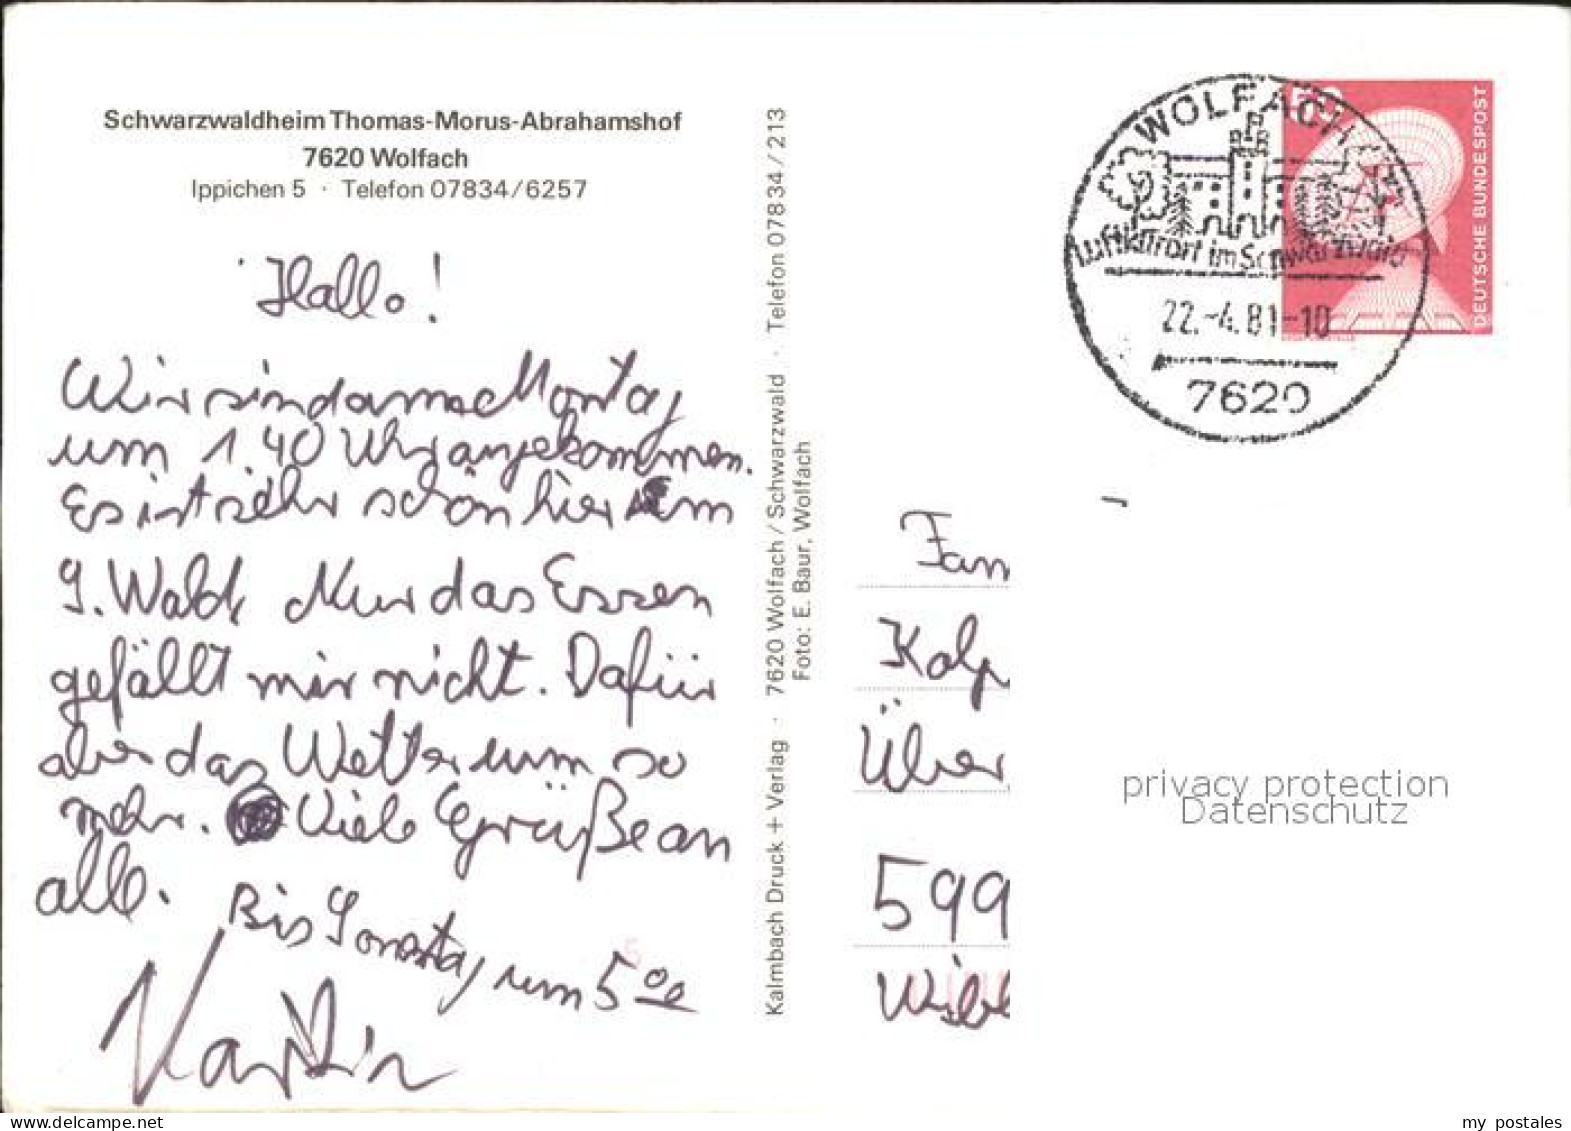 Schwarzwaldheim Thomas-Morus-Abrahamshof
7620 Wolfach
Ippichen 5 · Telefon 07834/6257
Hallo!
Wir sind am Montag
um 1.40 Uhr angekommen.
Es ist sehr schön hier im
g. Wald. Nur das Essen
gefällt mir nicht. Dafür
aber das Wetter um so
mehr. Viele Grüße an
alle. Bis Sonntag um 5 00
Kalmbach Druck + Verlag · 7620 Wolfach / Schwarzwald · Telefon 07834/213
Foto: E. Baur, Wolfach
WOLFACH
Luftkurort im Schwarzwald
22.-4.81-10
7620
50
DEUTSCHE BUNDESPOST
Fam
Kalp
Über
599
privacy protection
Datenschutz
www.delcampe.net
my_postales